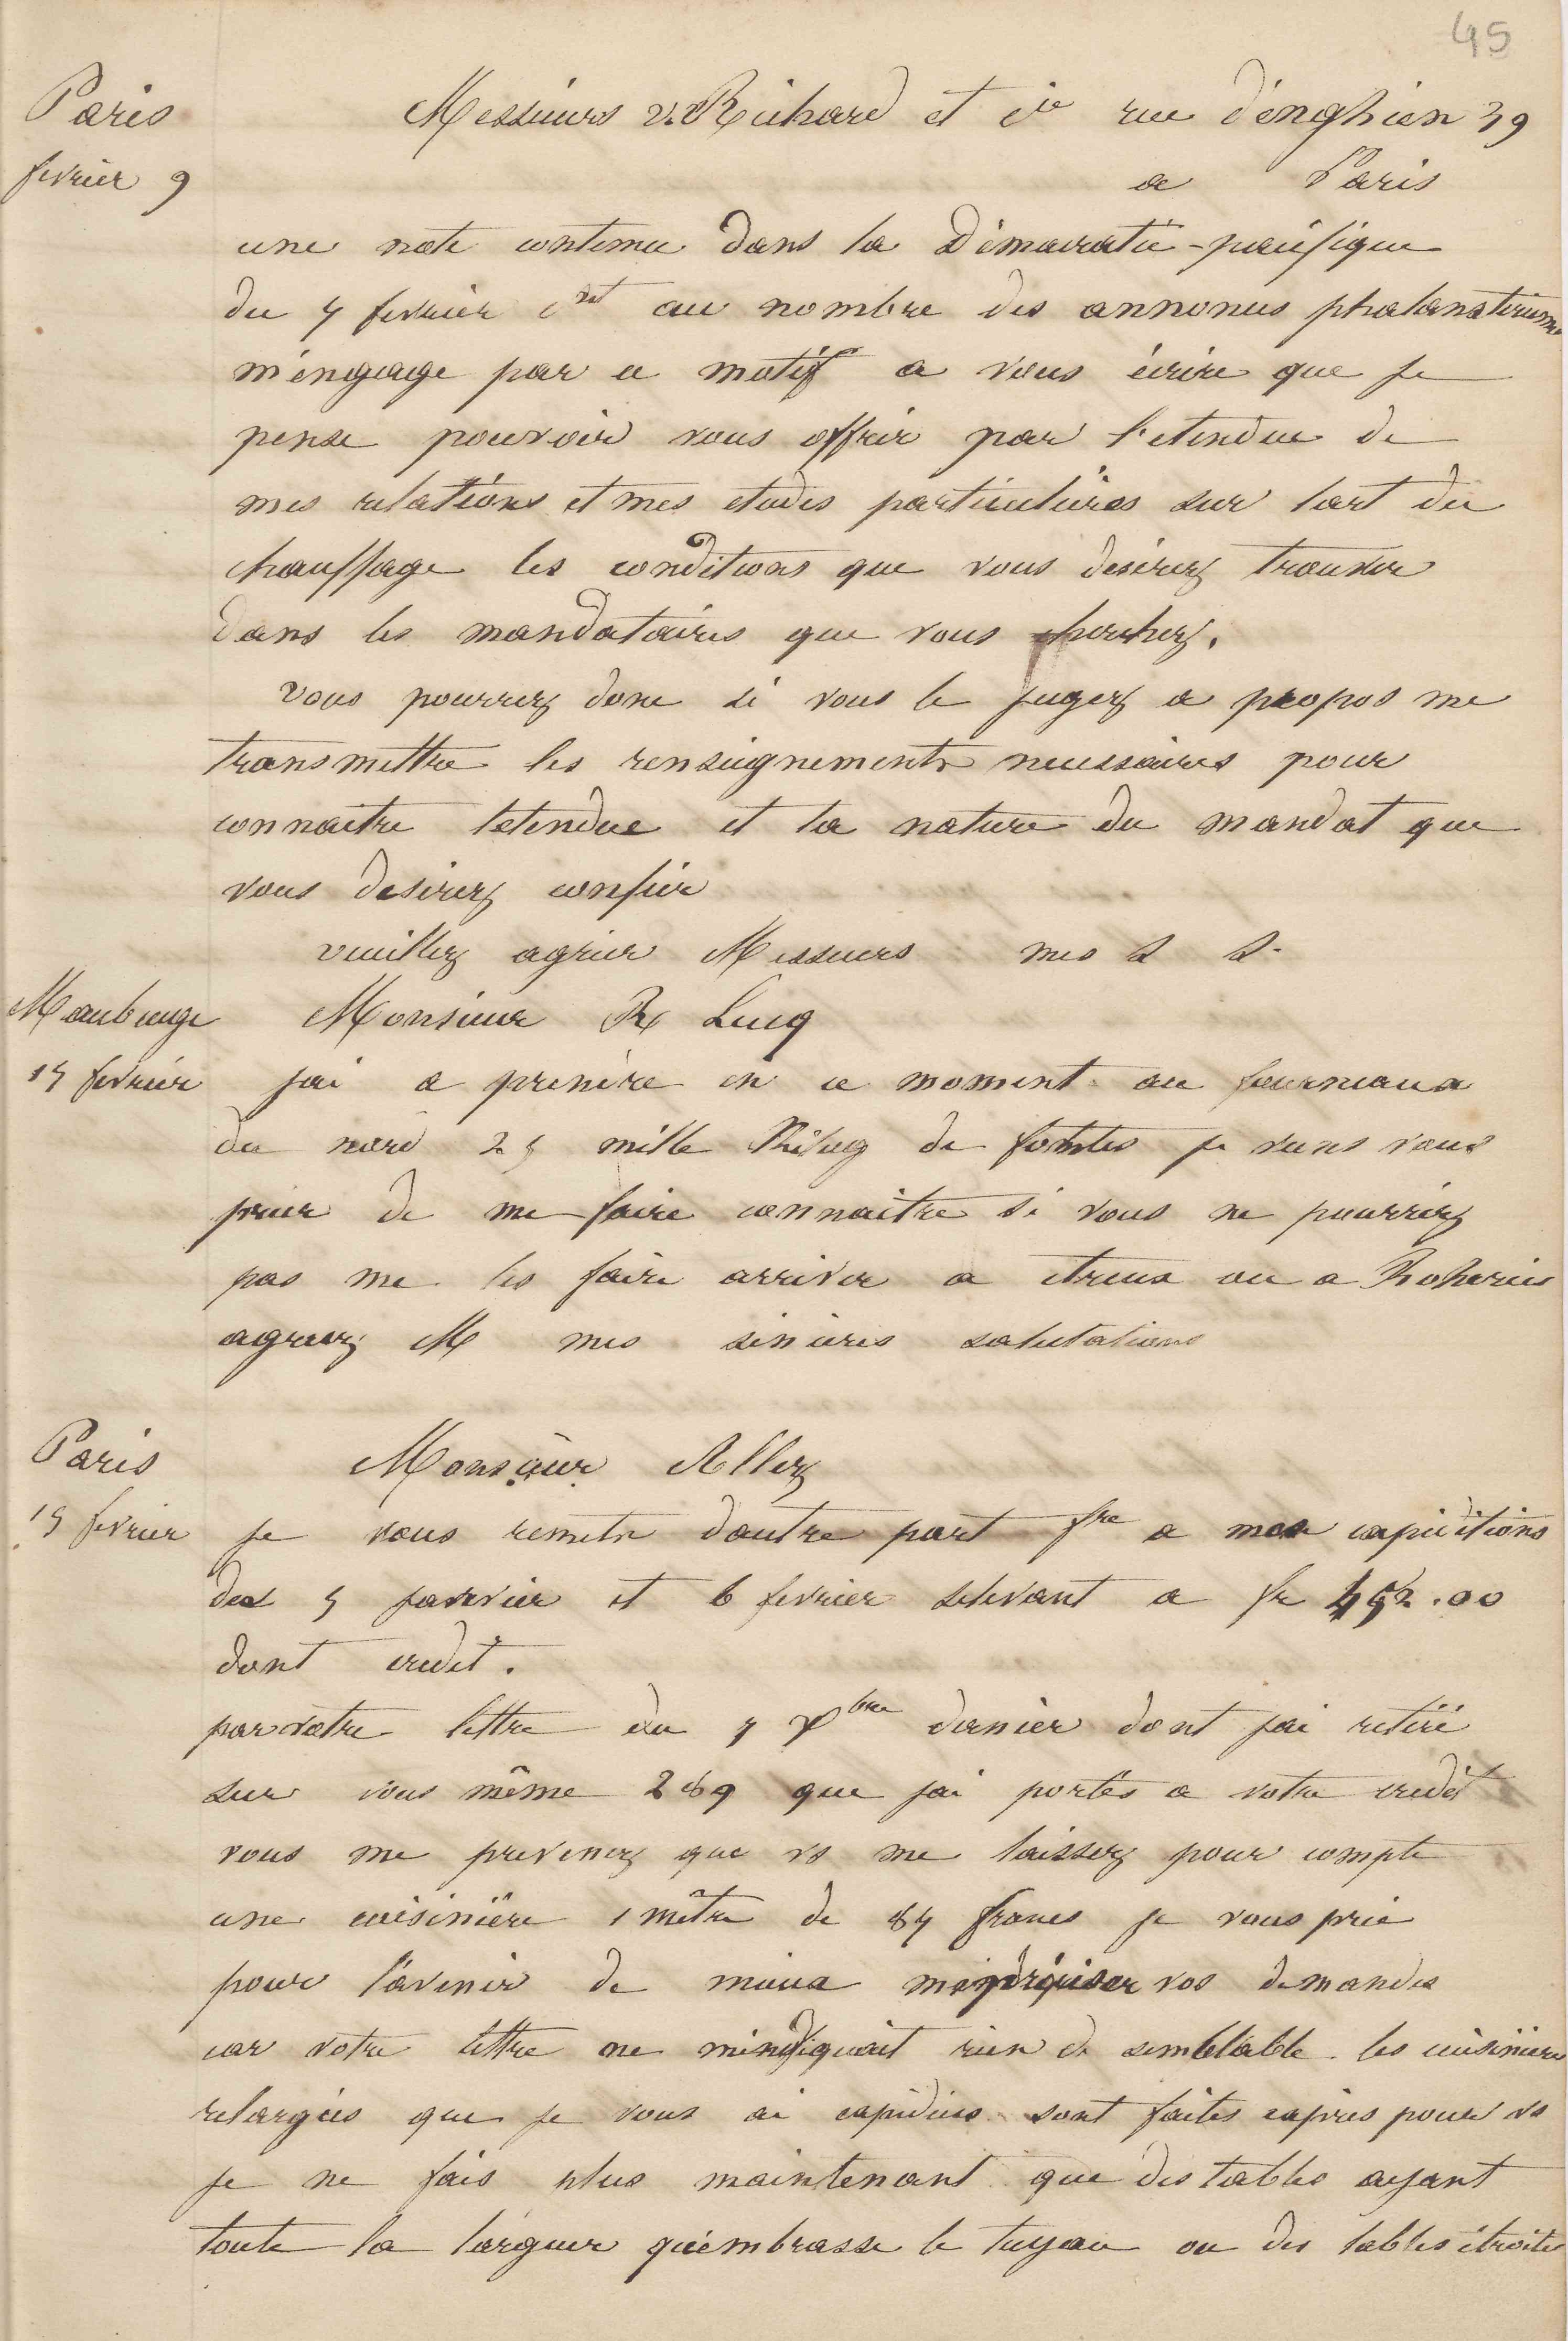 45
Paris
fevrier 9
Messieurs V. Richard et Cie rue d'enghien 39
a Paris
une note contenue dans la Démocratie-pacifique
du 7 fevrier ct au nombre des annonces phalansteriennes
m'engage par ce motif a vous écrire que je
pense pouvoir vous offrir par l'etendue de
mes relations et mes etudes particulières sur lart du
chauffage les conditions que vous desirez trouver
dans les mandataires que vous cherchez.
vous pourrez donc si vous le jugez a propos me
transmettre les renseignements necessaires pour
connaitre letendue et la nature du mandat que
vous desirez confier
veuillez agréer Messieurs mes s s.
Maubeuge
15 fevrier
Monsieur R Lucq
jai a prendre en ce moment au fourneaux
du nord 25 mille Kilog de fontes je viens vous
prier de me faire connaitre si vous ne pourriez
pas me les faire arriver a etreux ou a Roheries
agreez M mes sincères salutations
Paris
15 fevrier
Monsieur Allez
je vous remets dautre part fre a mes expéditions
des 5 janvier et 6 fevrier selevant a fr 452.00
dont credit.
par votre lettre du 7 Xbre dernier dont jai retiré
sur vous même 289 que jai portés a votre credit
vous me prevenez que vs me laissez pour compte
une cuisinière 1 mêtre de 87 francs je vous prie
pour l'avenir de mieux préciser vos demandes
car votre lettre ne mindiquait rien de semblable les cuisinières
relargies que je vous ai expédiées sont faites exprès pour vs
je ne fais plus maintenant que des tables ayant
toute la largeur qu'embrasse le tuyau ou des tables étroites